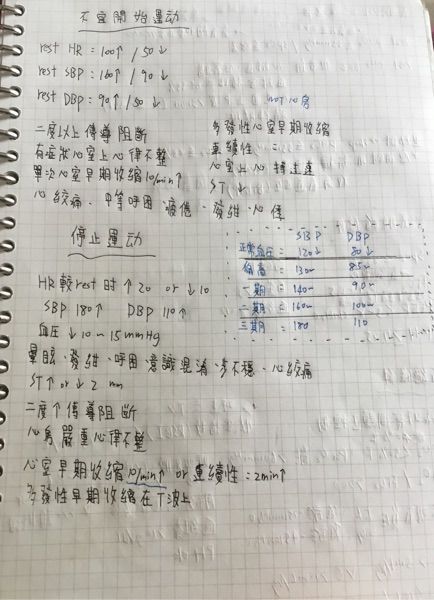 不宜開始運動
rest HR : 100↑ / 50↓
rest SBP : 160↑ / 90↓
rest DBP : 90↑ / 50↓
not 心房
二度以上傳導阻斷
多發性心室早期收縮
有症狀心室上心律不整
連續性 =
單次心室早期收縮 10/min↑
心室上心搏過速
ST↓
心絞痛、平等呼困、疲倦、發紺、心悸
停止運動
SBP DBP
正常血壓 = 120↓ 80↓
偏高 = 130~ 85~
一期 = 140~ 90~
二期 = 160~ 100~
三期 = 180 110
HR 較rest時 ↑20 or ↓10
SBP 180↑ DBP 110↑
血壓 ↓ 10~15 mmHg
暈眩、發紺、呼困、意識混淆、步不穩、心絞痛
ST↑ or ↓ 2 mm
二度↑傳導阻斷
心房嚴重心律不整
心室早期收縮 10/min↑ or 連續性 : 2min↑
多發性早期收縮在T波上